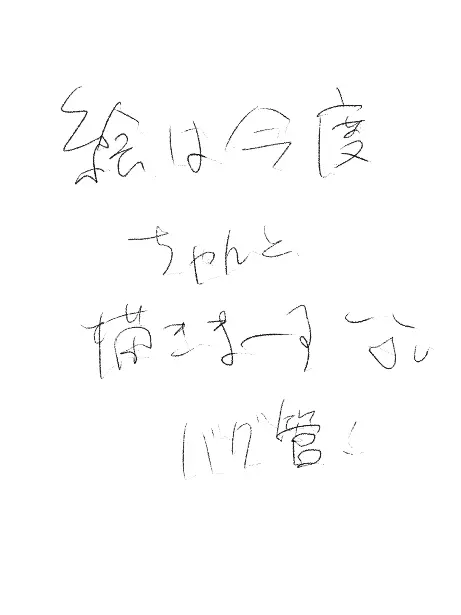 絵は今度
ちゃんと
描きまーす
バグ管